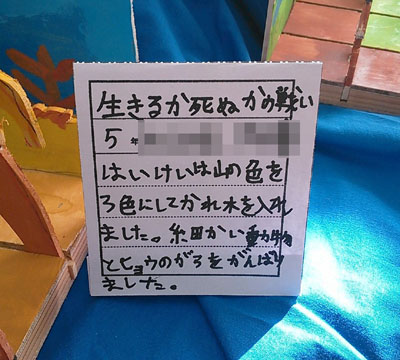 生きるか死ぬかの戦い
5年
はいけいは山の色を
3色にしてかれ木を入れ
ました。細かい動物
とヒョウのがらをがんばり
ました。